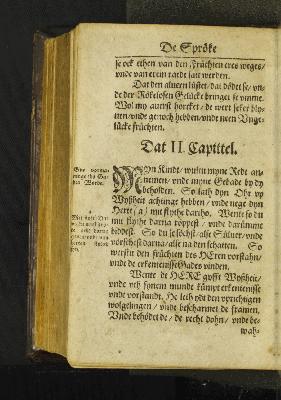 De Spröke
se ock ethen van den früchten eres weges/
vnde van erem rade sat werden.
Dat den alueren lüstet/ dat dödet se/ vn-
de der Rökelosen Gelücke bringet se vmme.
Wol my auerst horket/ de wert seker bly-
uen/ vnde genoch hebben/ vnde neen Vnge-
lücke früchten.
Dat II. Capittel.
MYn Kindt/ wultu myne Rede an-
nemen/ vnde myne Gebade by dy
beholden. So lath dyn Ohr vp
Wyßheit achtinge hebben/ vnde nege dyn
Herte (a) mit flythe dartho. Wente so du
mit flythe darna röppest/ vnde darümme
biddest. So du se söchst/ alse Sülver/ vnde
vorschest darna/ alse na den schatten. So
werstu den früchten des HEren vorstahn/
vnde de erkentenisse Gades vinden.
Wente de HERE gyfft Wyßheit/
vnde vth synem munde kümpt erkentenisse
vnde vorstandt. He leth ydt den vprichtigen
wolgelingen/ vnde beschermet de framen.
Vnde behödet de/ de recht dohn/ vnde be-
wah-